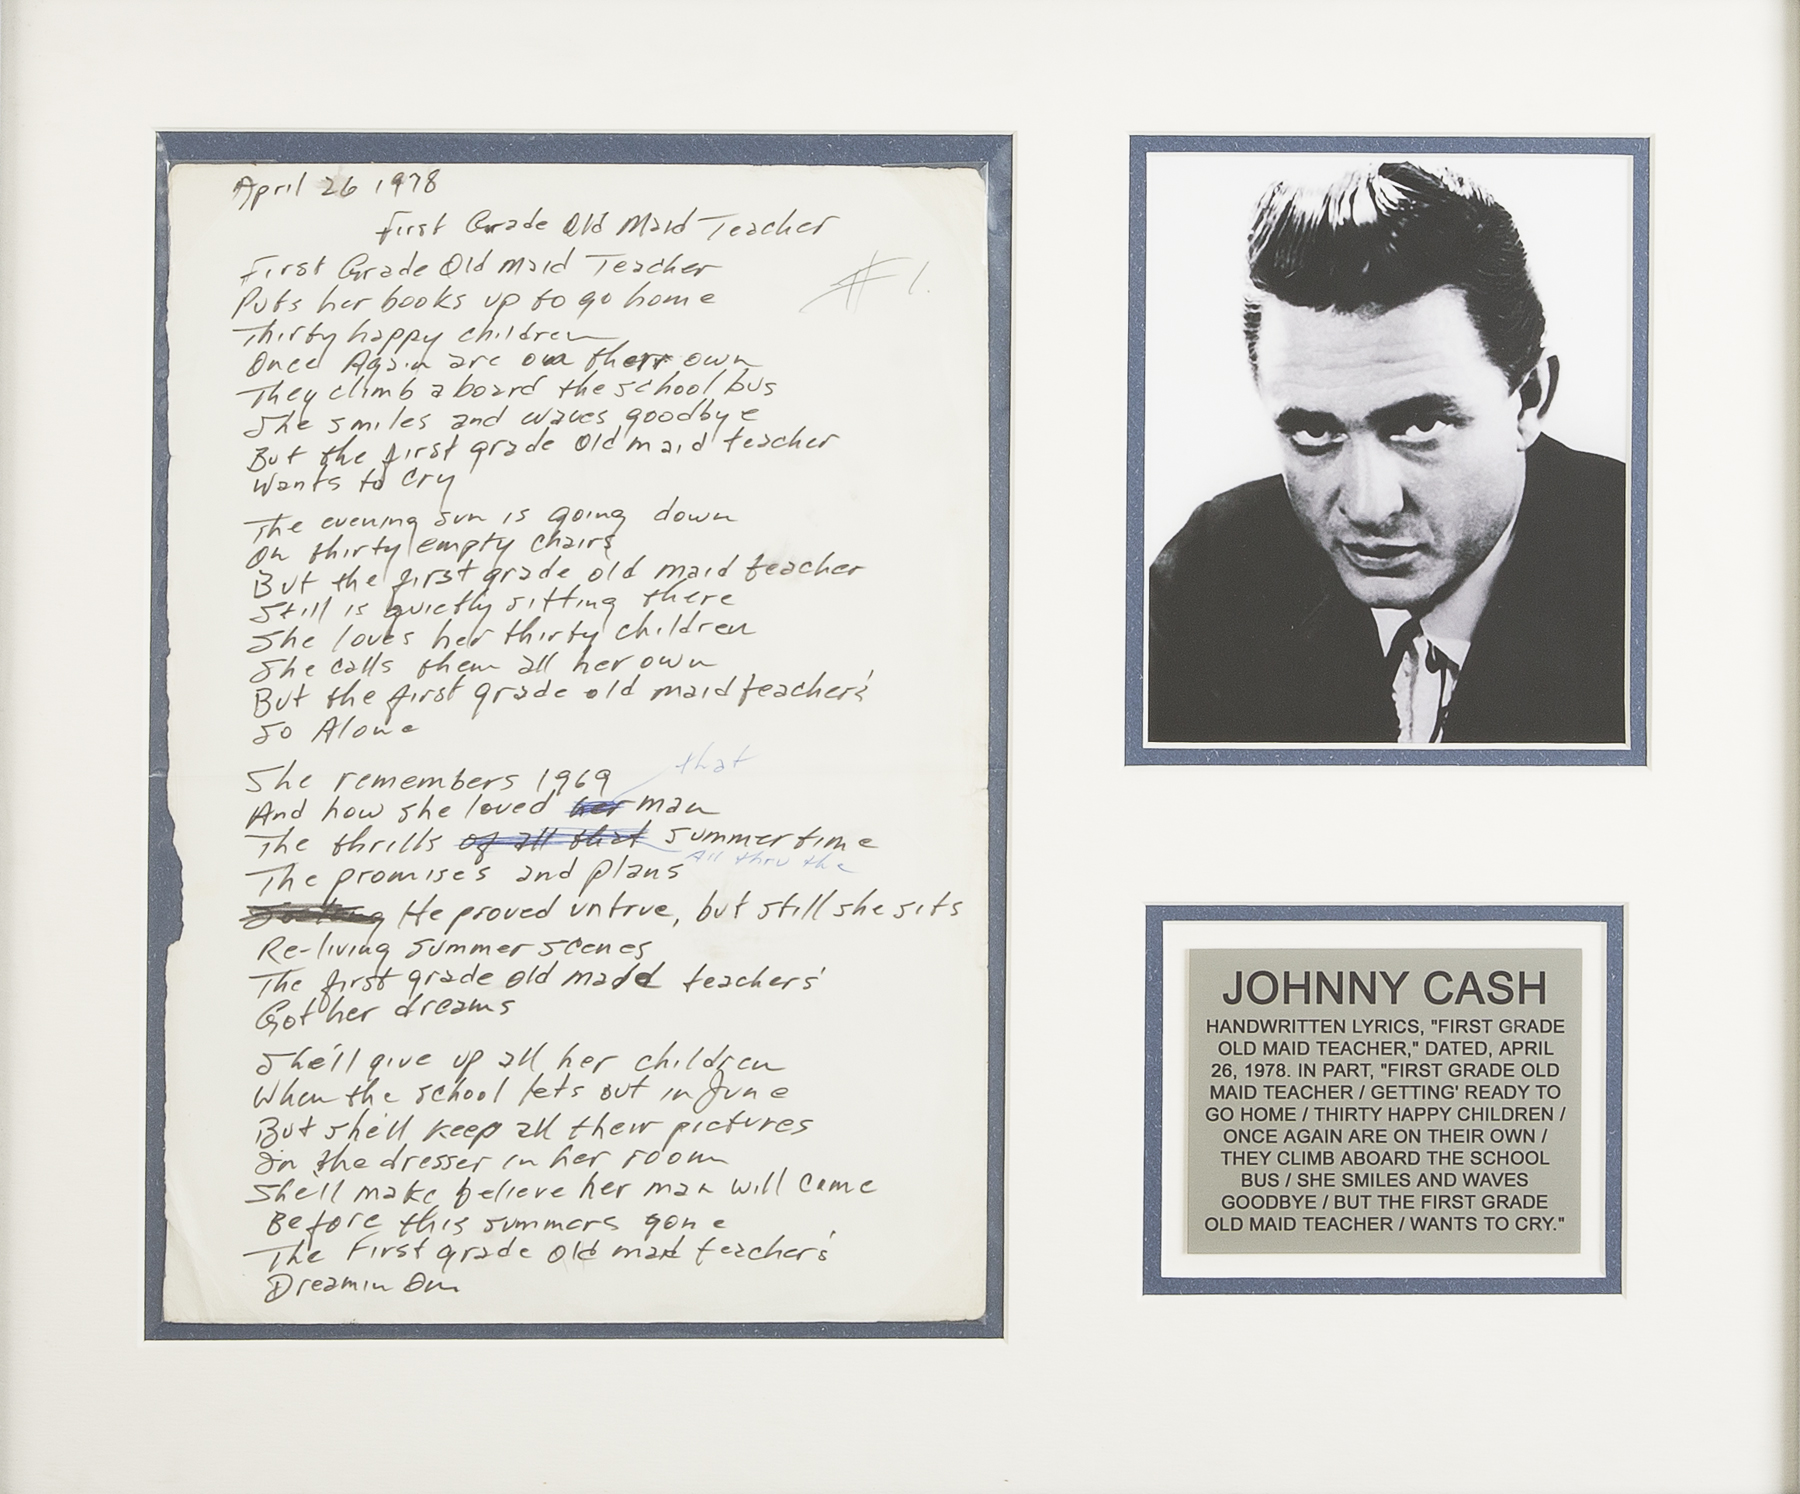 April 26 1978
First Grade Old Maid Teacher
# 1.
First Grade Old Maid Teacher
Puts her books up to go home
Thirty happy children
Once Again are on their own
They climb aboard the school bus
She smiles and waves goodbye
But the first grade Old maid teacher
Wants to Cry
The evening sun is going down
On thirty empty chairs
But the first grade old maid teacher
Still is quietly sitting there
She loves her thirty children
She calls them all her own
But the first grade old maid teacher's
So Alone
that
She remembers 1969
And how she loved her man
The thrills of all that summertime
All thru the
The promises and plans
He proved untrue, but still she sits
Re-living summer scenes
The first grade old maid teachers'
Got her dreams
She'll give up all her children
When the school lets out in June
But she'll keep all their pictures
In the dresser in her room
She'll make believe her man will come
Before this summers gone
The First grade old maid teacher's
Dreamin On
JOHNNY CASH
HANDWRITTEN LYRICS, "FIRST GRADE
OLD MAID TEACHER," DATED, APRIL
26, 1978. IN PART, "FIRST GRADE OLD
MAID TEACHER / GETTING' READY TO
GO HOME / THIRTY HAPPY CHILDREN /
ONCE AGAIN ARE ON THEIR OWN /
THEY CLIMB ABOARD THE SCHOOL
BUS / SHE SMILES AND WAVES
GOODBYE / BUT THE FIRST GRADE
OLD MAID TEACHER / WANTS TO CRY."